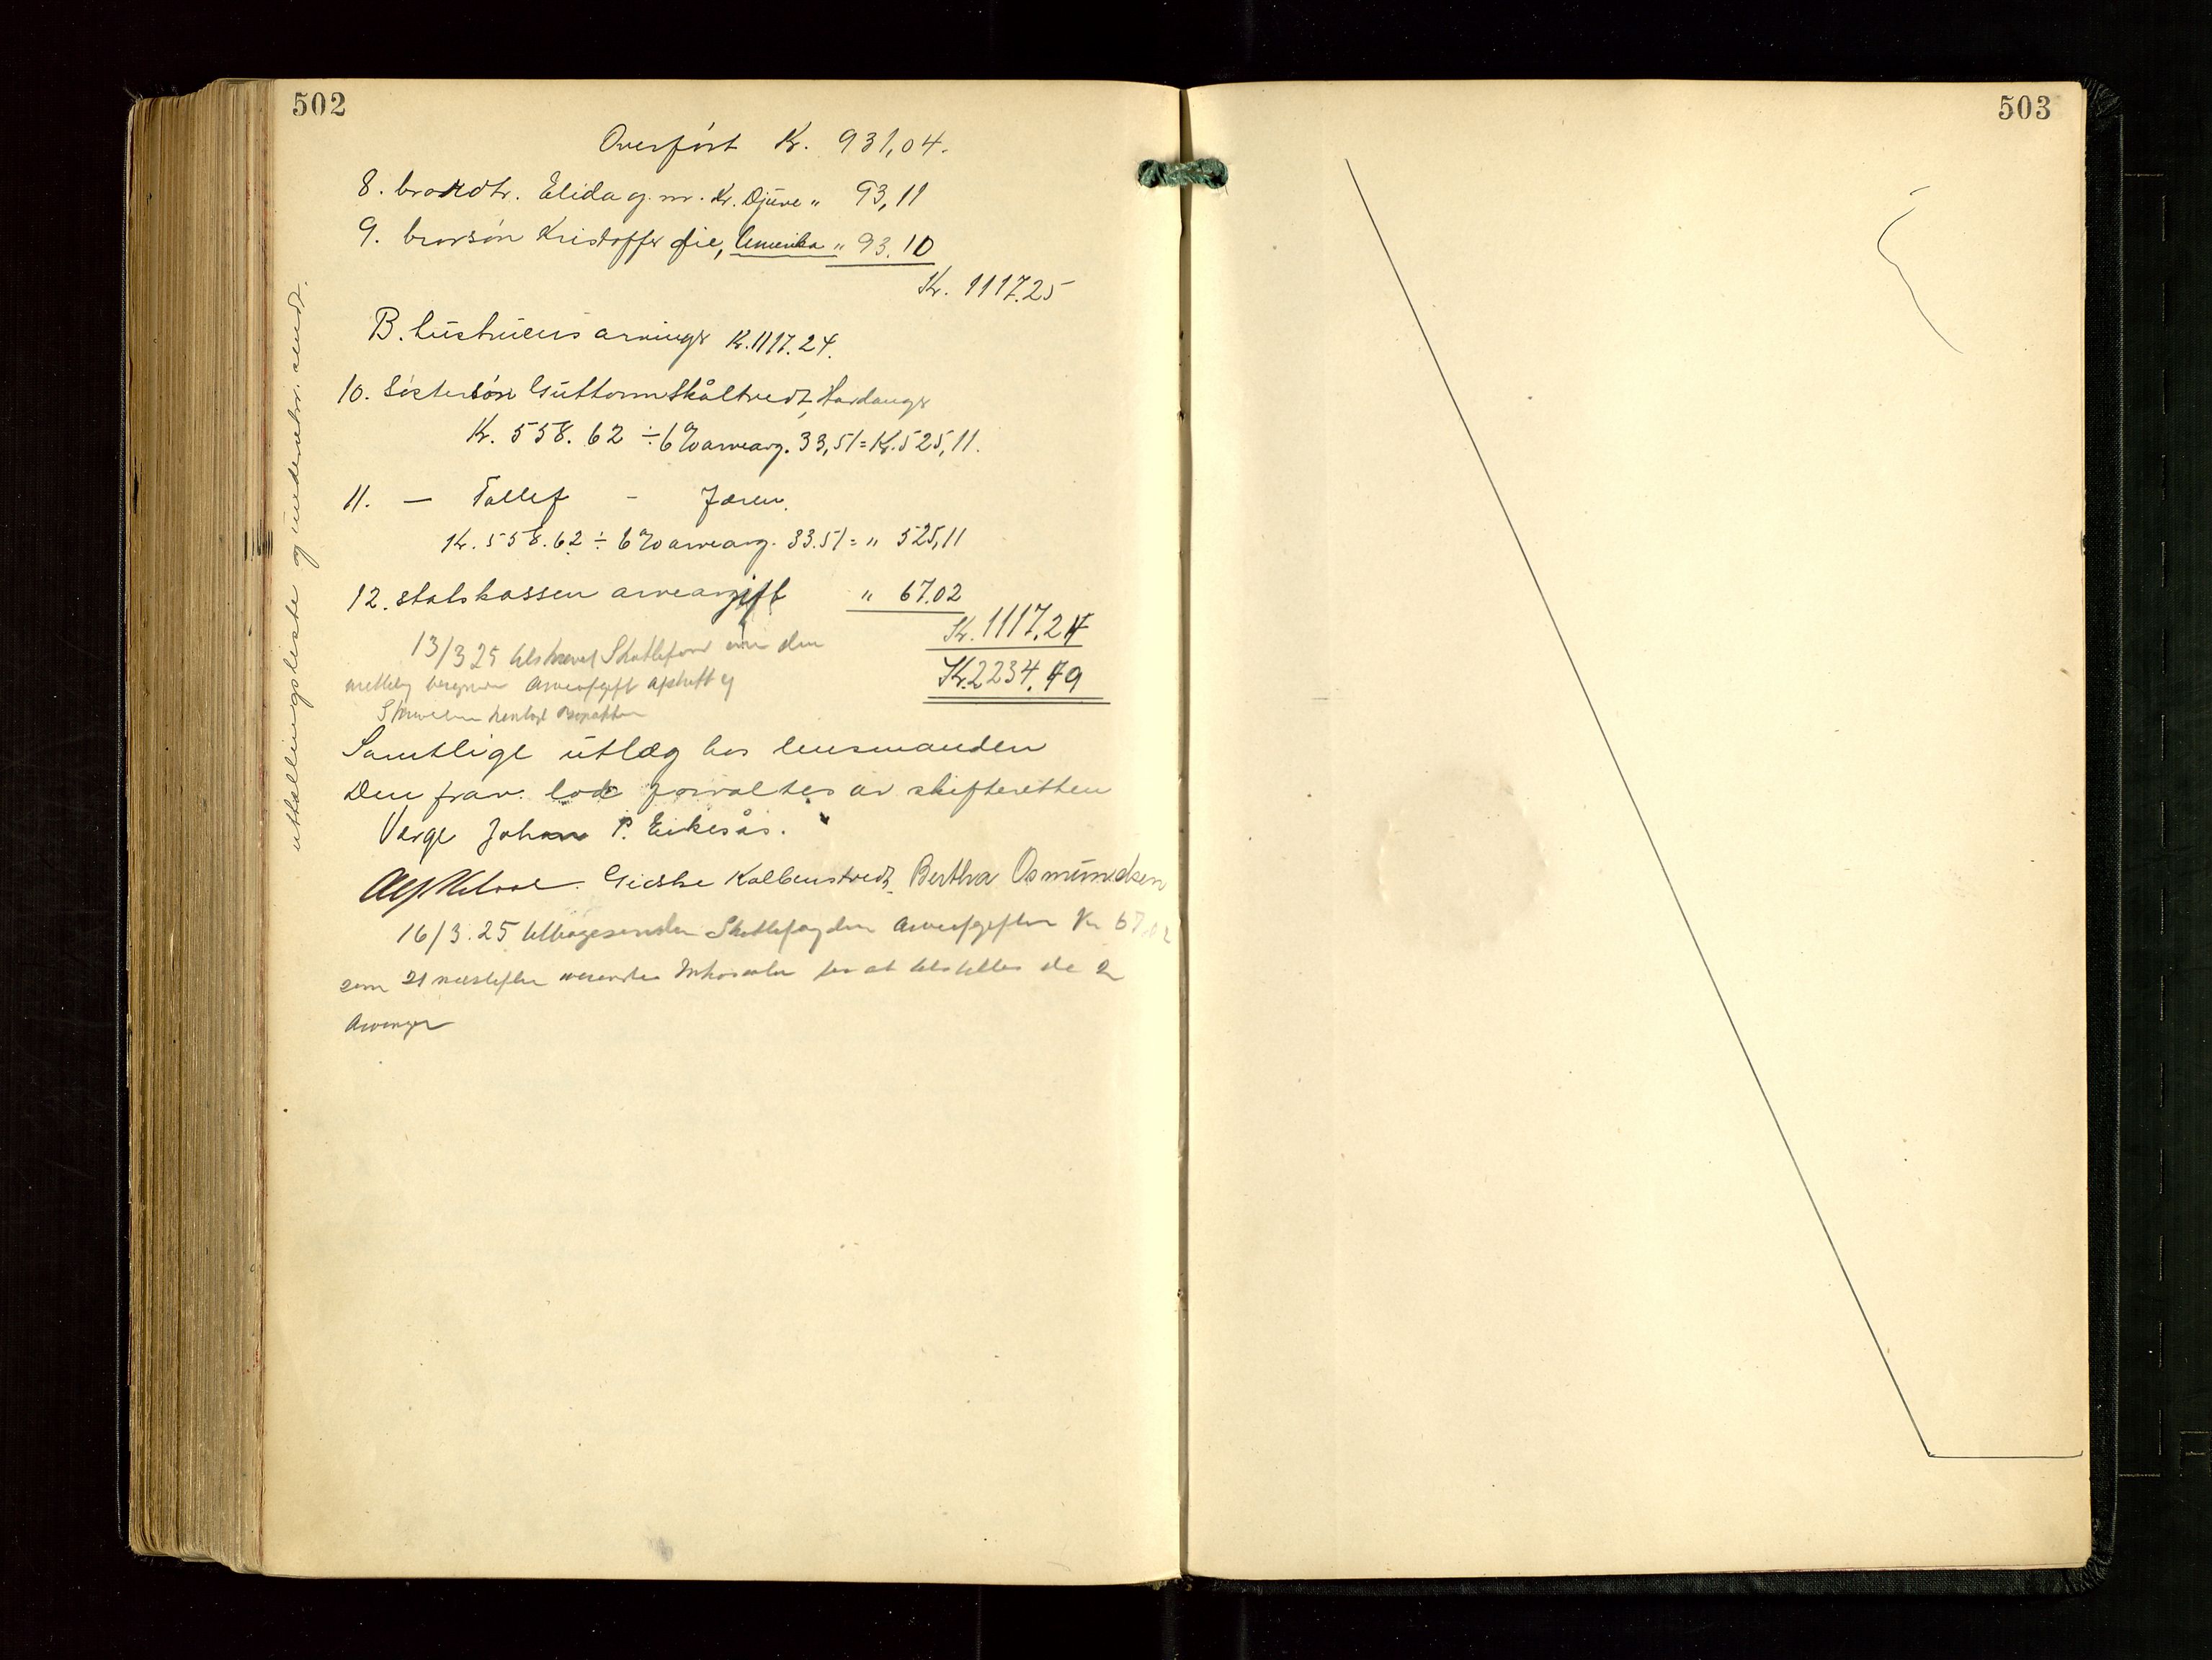 502
Overført Kr. 931,04.
8. brordtr. Elida g. m. Kr. Djuve " 93,11
9. brorsøn Kristoffer Lie, Amerika " 93.10
Kr. 1117.25
B. hustruens arvinger Kr. 1117.24.
10. Søstersøn Guttorm Skåltvedt, Hardanger
Kr. 558.62 ÷ 6% arveavg. 33,51 = Kr. 525,11.
11. — Tollef - Jæren.
Kr. 558.62 ÷ 6% arveavg. 33.51 = " 525,11
12. statskassen arveavgift " 67.02
Kr. 1117.24
Kr. 2234.49
13/3 25 tilskrevet Skattefoged om den
arveafgift afskrift af
Samtlige utlæg hos lensmanden
Den frav. lod forvaltes av skifteretten
Verge Johan P. Eikesås.
Gidske Kolbenstvedt. Bertha Osmundsen
16/3.25 tilbagesender Skattefogden Arveafgiften Kr 67.02
som for at tilstilles de 2
Arvinger
uttællingsliste og underretn. sendt.
503